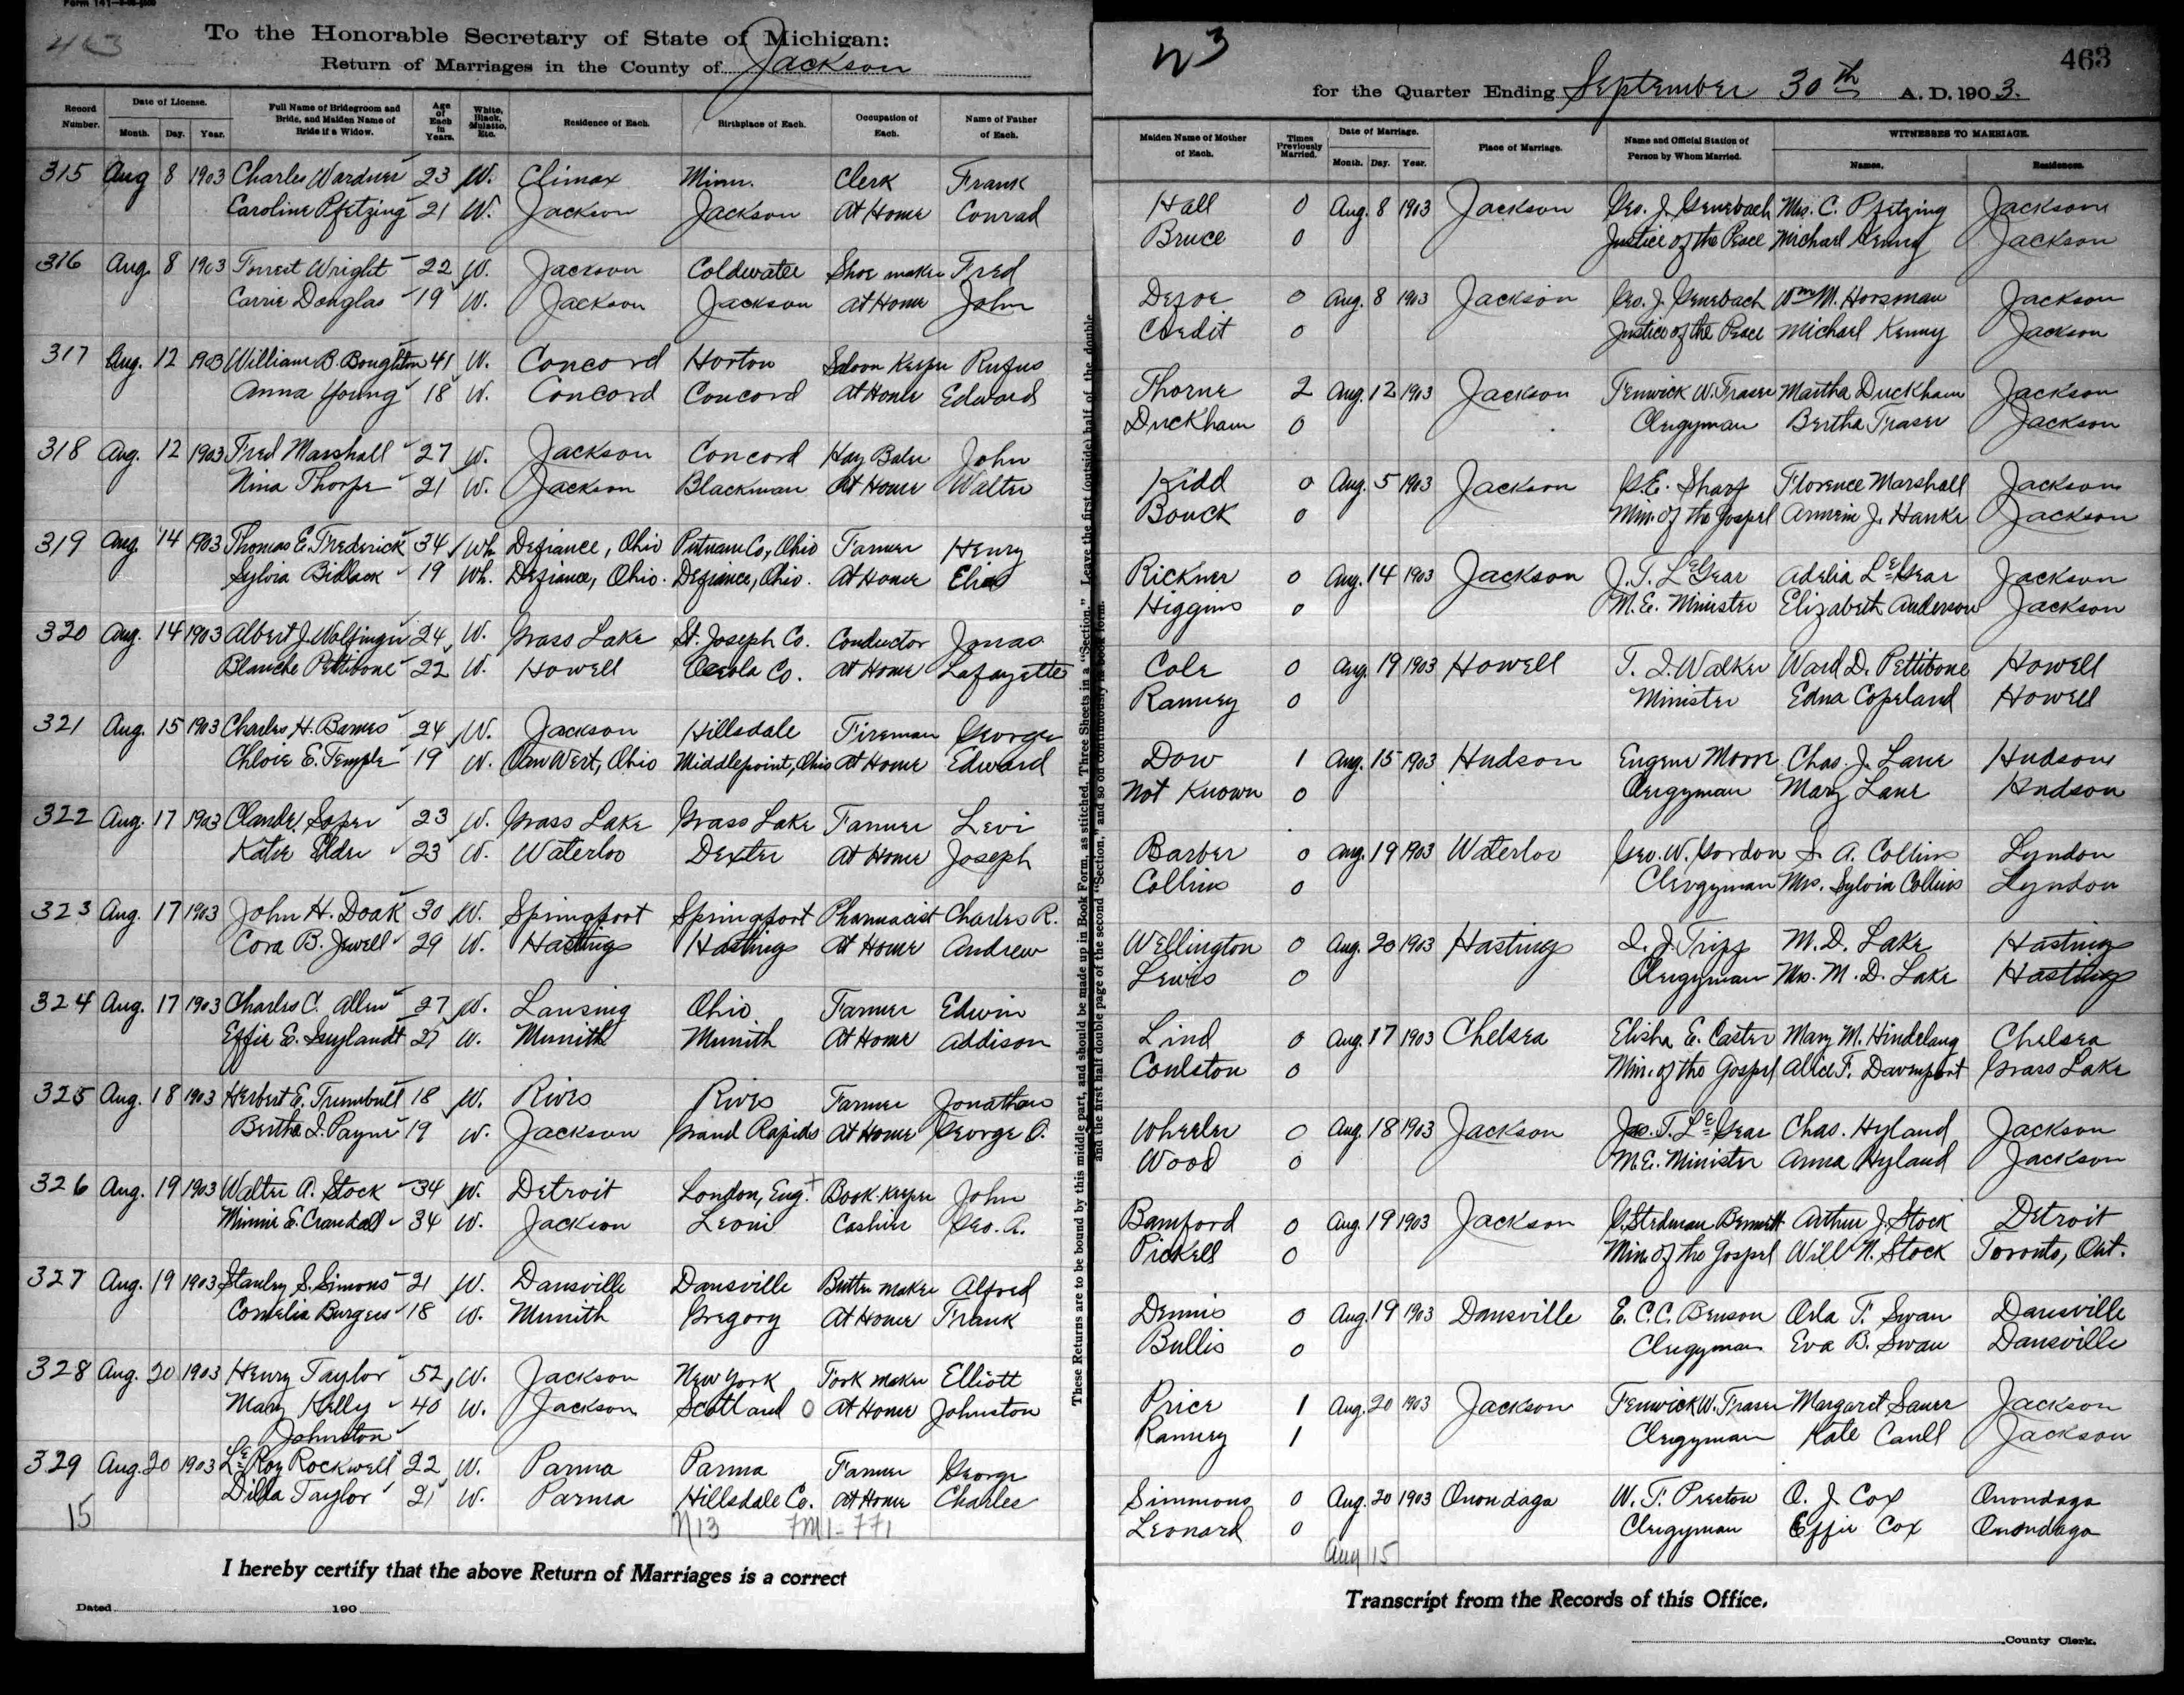 Form 141
463
To the Honorable Secretary of State of Michigan:
Return of Marriages in the County of Jackson
Record Number. Date of License. Month. Day. Year. Full Name of Bridegroom and Bride, and Maiden Name of Bride if a Widow. Age of Each in Years. White, Black, Mulatto, Etc. Residence of Each. Birthplace of Each. Occupation of Each. Name of Father of Each.
315 Aug 8 1903 Charles Wardner 23 W. Climax Minn. Clerk Frank
Caroline Pfetzing 21 W. Jackson Jackson At Home Conrad
316 Aug. 8 1903 Forrest Wright 22 W. Jackson Coldwater Shoe maker Fred
Carrie Douglas 19 W. Jackson Jackson At Home John
317 Aug. 12 1903 William B. Boughton 41 W. Concord Horton Saloon Keeper Rufus
Anna Young 18 W. Concord Concord At Home Edward
318 Aug. 12 1903 Fred Marshall 27 W. Jackson Concord Hay Baler John
Nina Thorpe 21 W. Jackson Blackman At Home Walter
319 Aug. 14 1903 Thomas E. Frederick 34 Wh. Defiance, Ohio Putnam Co., Ohio Farmer Henry
Sylvia Bidlack 19 Wh. Defiance, Ohio. Defiance, Ohio. At Home Elias
320 Aug. 14 1903 Albert J. Wolfinger 24 W. Grass Lake St. Joseph Co. Conductor Jonas
Blanche Pettibone 22 W. Howell Oceola Co. At Home Lafayette
321 Aug. 15 1903 Charles H. Barnes 24 W. Jackson Hillsdale Fireman George
Chloie E. Temple 19 W. Van Wert, Ohio Middlepoint, Ohio At Home Edward
322 Aug. 17 1903 Claude Soper 23 W. Grass Lake Grass Lake Farmer Levi
Katie Elder 23 W. Waterloo Dexter At Home Joseph
323 Aug. 17 1903 John H. Doak 30 W. Springport Springport Pharmacist Charles R.
Cora B. Jewell 29 W. Hastings Hastings At Home Andrew
324 Aug. 17 1903 Charles C. Allen 27 W. Lansing Ohio Farmer Edwin
Effie E. 27 W. Munith Munith At Home Addison
325 Aug. 18 1903 Herbert E. Trumbull 18 W. Rives Rives Farmer Jonathan
Bertha I. Payne 19 W. Jackson Grand Rapids At Home George O.
326 Aug. 19 1903 Walter A. Stock 34 W. Detroit London, Eng. Book-keeper John
Minnie E. Crandall 34 W. Jackson Leoni Cashier Geo. A.
327 Aug. 19 1903 Stanley S. Simons 21 W. Dansville Dansville Butter maker Alfred
Cornelia Burgess 18 W. Munith Gregory At Home Frank
328 Aug. 20 1903 Henry Taylor 52 W. Jackson New York Fork maker Elliott
Mary Kelly 40 W. Jackson Scotland O At Home Johnston
Johnston
329 Aug. 20 1903 Le Roy Rockwell 22 W. Parma Parma Farmer George
Dilla Taylor 21 W. Parma Hillsdale Co. At Home Charles
15 N13 7M1-771
I hereby certify that the above Return of Marriages is a correct
Dated 190
These Returns are to be bound by this middle part, and should be made up in Book Form, as stitched. Three Sheets in a "Section." Leave the first (outside) half of the double
and the first half double page of the second "Section," and so on continuously in book form.
n3
463
for the Quarter Ending September 30th A. D. 1903.
Maiden Name of Mother of Each. Times Previously Married. Date of Marriage. Month. Day. Year. Place of Marriage. Name and Official Station of Person by Whom Married. WITNESSES TO MARRIAGE. Names. Residences.
Hall 0 Aug. 8 1903 Jackson Geo. J. Genebach Mrs. C. Pfetzing Jackson
Bruce 0 Justice of the Peace Michael Kenny Jackson
Defoe 0 Aug. 8 1903 Jackson Geo. J. Genebach Wm M. Horsman Jackson
Credit 0 Justice of the Peace Michael Kenny Jackson
Thorne 2 Aug. 12 1903 Jackson Fenwick W. Fraser Martha Duckham Jackson
Duckham 0 Clergyman Bertha Fraser Jackson
Kidd 0 Aug. 5 1903 Jackson Sharp Florence Marshall Jackson
Bouck 0 Min. of the Gospel Armin J. Hanke Jackson
Rickner 0 Aug. 14 1903 Jackson J. T. LeGear Adelia LeGear Jackson
Higgins 0 M. E. Minister Elizabeth Anderson Jackson
Cole 0 Aug. 19 1903 Howell T. I. Walker Ward D. Pettibone Howell
Ranney 0 Minister Edna Copeland Howell
Dow 1 Aug. 15 1903 Hudson Eugene Moore Chas. J. Lane Hudson
Not Known 0 Clergyman Mary Lane Hudson
Barber 0 Aug. 19 1903 Waterloo Geo. W. Gordon S. A. Collins Lyndon
Collins 0 Clergyman Mrs. Sylvia Collins Lyndon
Wellington 0 Aug. 20 1903 Hastings I. J. Tripp M. D. Lake Hastings
Lewis 0 Clergyman Mrs. M. D. Lake Hastings
Lind 0 Aug. 17 1903 Chelsea Elisha E. Caster Mary M. Hindelang Chelsea
Coulston 0 Min. of the Gospel Alice F. Davenport Grass Lake
Wheeler 0 Aug. 18 1903 Jackson Jas. T. LeGear Chas. Hyland Jackson
Wood 0 M.E. Minister Anna Hyland Jackson
Bamford 0 Aug. 19 1903 Jackson Stedman Bennett Arthur J. Stock Detroit
Pickell 0 Min. of the Gospel Will N. Stock Toronto, Ont.
Dennis 0 Aug. 19 1903 Dansville E. C. C. Benson Orla F. Swan Dansville
Bullis 0 Clergyman Eva B. Swan Dansville
Price 1 Aug. 20 1903 Jackson Fenwick W. Fraser Margaret Sauer Jackson
Ranney 1 Clergyman Kate Caull Jackson
Simmons 0 Aug. 20 1903 Onondaga W. F. Preston O. J. Cox Onondaga
Leonard 0 Clergyman Effie Cox Onondaga
Aug 15
Transcript from the Records of this Office.
County Clerk.